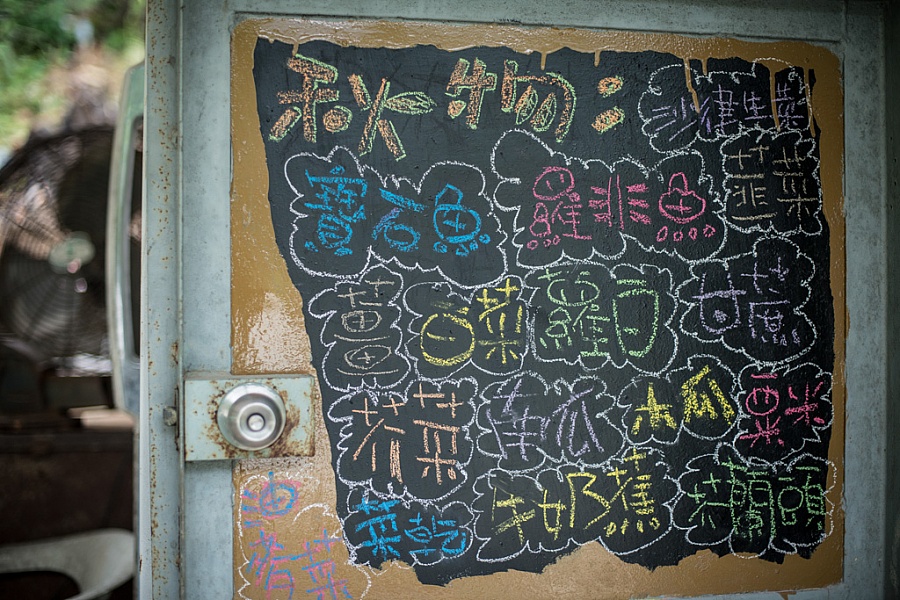 秋物：
沙律生菜
寶石魚
羅非魚
韭菜
薑
白菜
蘿白
甘蔗
芥菜
南瓜
木瓜
粟米
菜乾
奶蕉
頭
油
菜